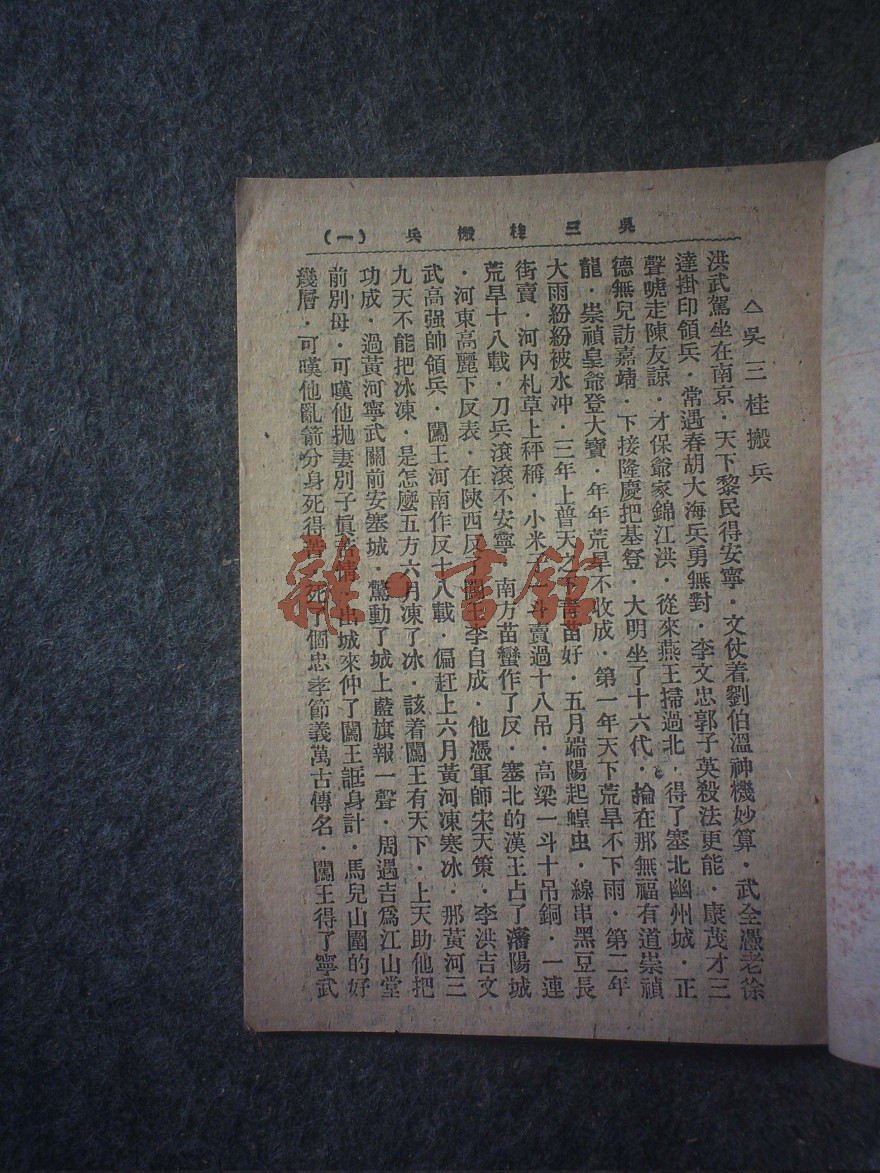 吳三桂搬兵（一）
△吳三桂搬兵
洪武駕坐在南京．天下黎民得安寧．文仗着劉伯溫神機妙算．武全憑老徐
達掛印領兵．常遇春胡大海兵勇無對．李文忠郭子英殺法更能．康茂才三
聲唬走陳友諒．才保爺家錦江洪．從來燕王掃過北．得了塞北幽州城．正
德無兒訪嘉靖．下接隆慶把基登．大明坐了十六代．掄在那無福有道崇禎
龍．崇禎皇爺登大寶．年年荒旱不收成．第一年天下荒旱不下雨．第二年
大雨紛紛被水冲．三年上普天之下青苗好．五月端陽起蝗虫．線串黑豆長
街賣．河內札草上秤稱．小米子一斗賣過十八吊．高梁一斗十吊銅．一連
荒旱十八載．刀兵滾滾不安寧．南方苗蠻作了反．塞北的漢王占了瀋陽城
．河東高麗下反表．在陝西反了闖王李自成．他憑軍師宋天策．李洪吉文
武高强帥領兵．闖王河南作反十八載．偏赶上六月黃河凍寒冰．那黃河三
九天不能把冰凍．是怎麼五方六月凍了冰．該着闖王有天下．上天助他把
功成．過黃河寧武關前安塞城．驚動了城上藍旗報一聲．周遇吉爲江山堂
前別母．可嘆他拋妻別子眞苦情．出城來仲了闖王誆身計．馬兒山圍的好
幾層．可嘆他亂箭分身死得苦．死了個忠孝節義萬古傳名．闖王得了寧武
雜·書館